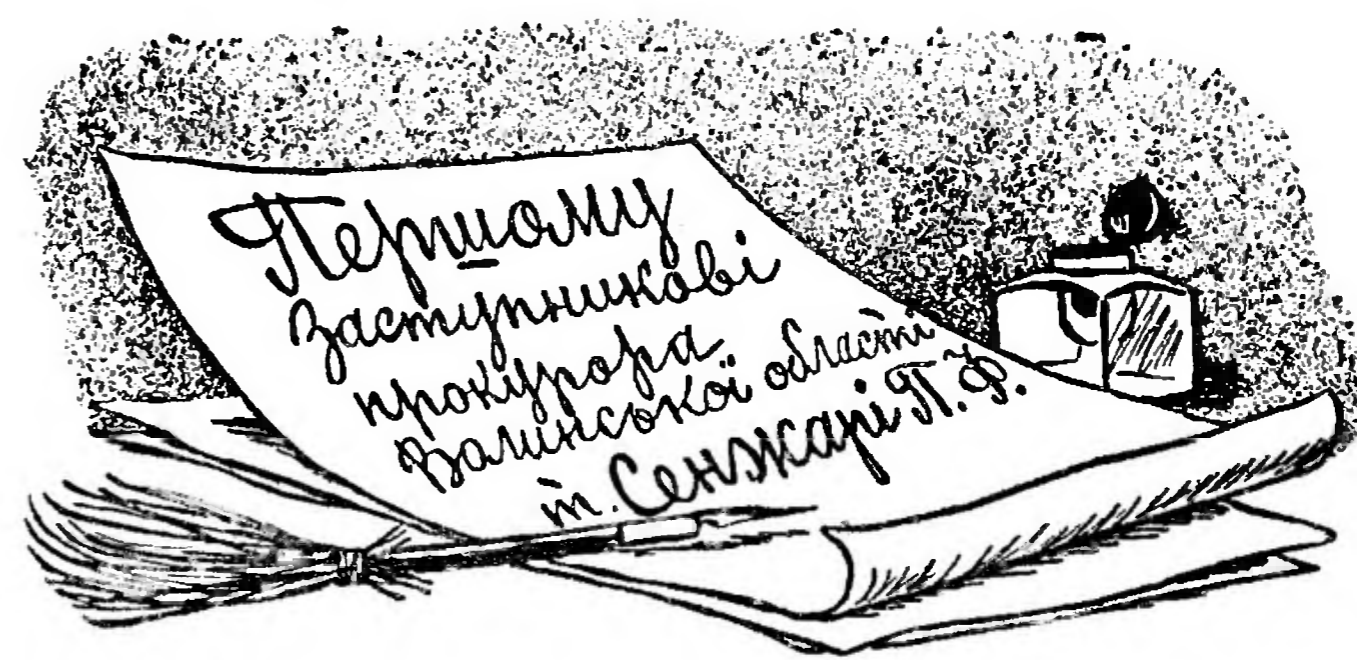 Першому
Заступникові
прокурора
Валинської області
т. Сенжарі П. Ф.